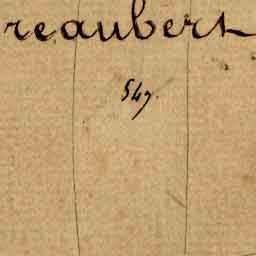 reaubert
547.